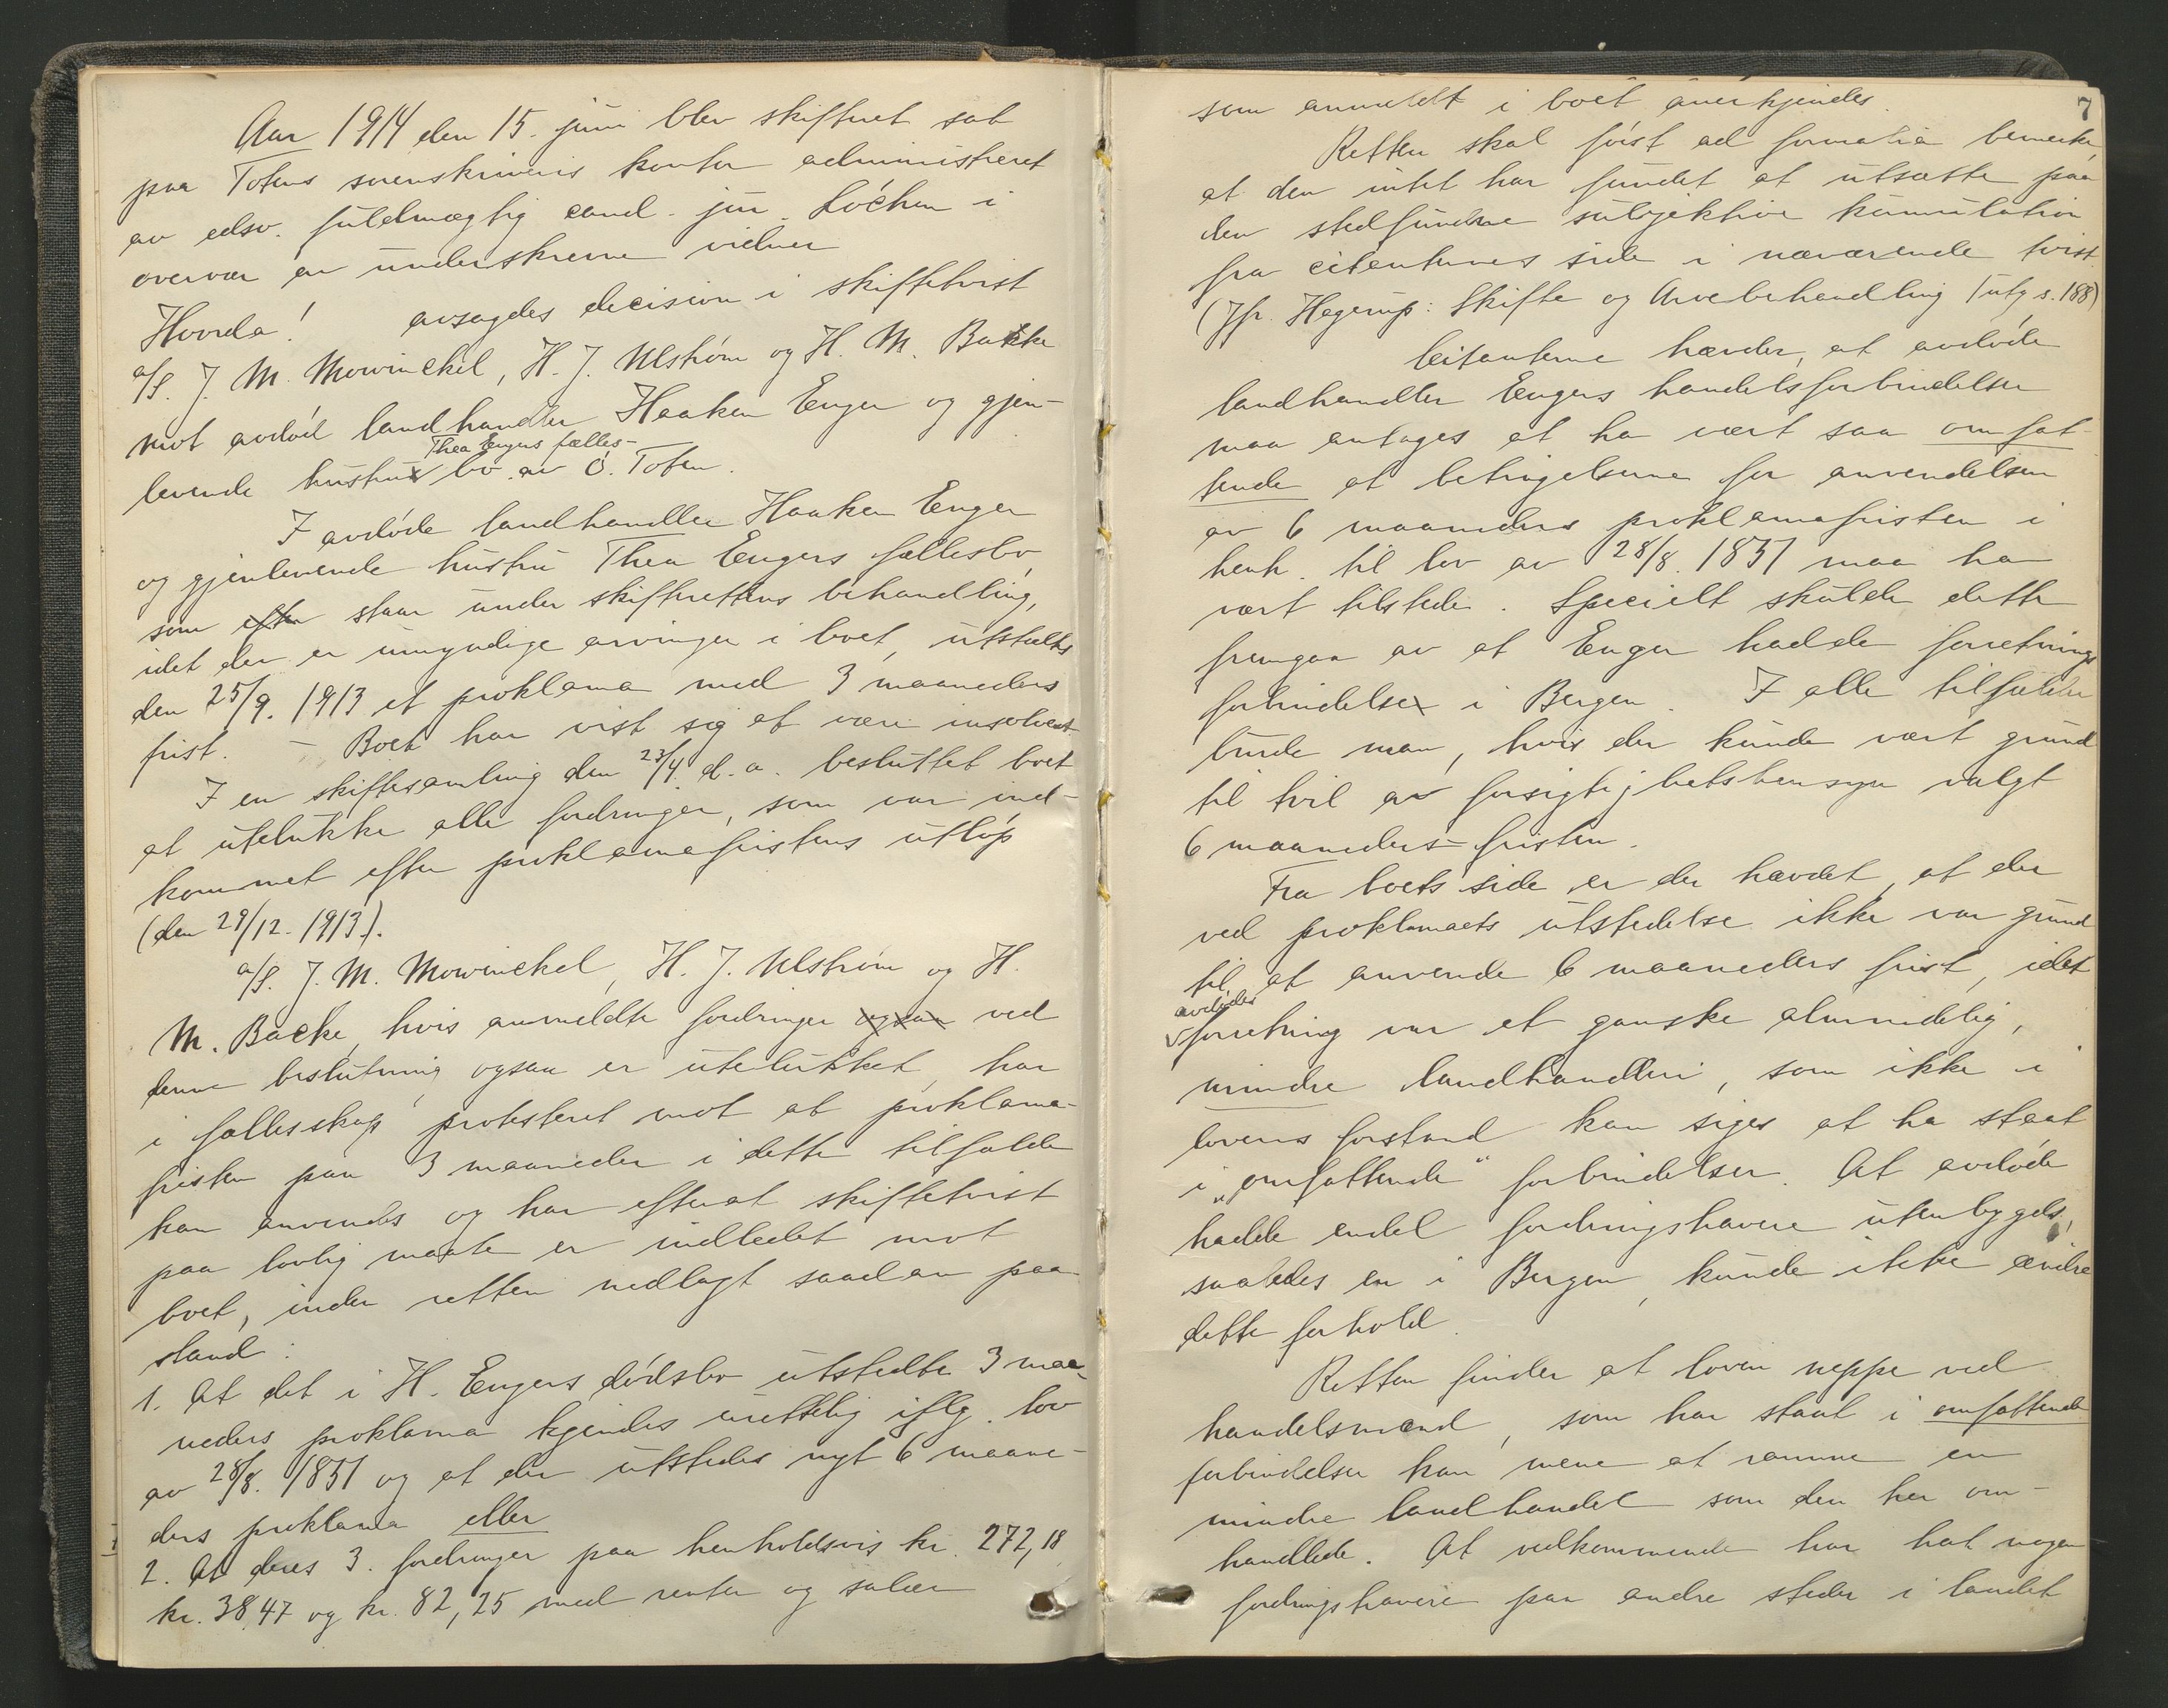 Aar 1914 den 15. juni blev skifteret sat
paa Totens sorenskriveris kontor administreret
av edsv. fuldmægtig cand. jur. Lóchen i
overvær av underskrevne vidner
Hvorda! avsagdes decision i skiftetvist
a/S. J. M. Mowinckel, H. J. Ulstróm og H. M. Backe
mot avdód landhandler Haaken Enger og gjen-
levende hustru Thea Engers fælles-
bo av Ó. Toten.
I avdóde landhandler Haaken Enger
og gjenlevende hustru Thea Engers fællesbo,
som efter staar under skifterettens behandling,
idet der er umyndige arvinger i boet, utstedtes
den 25/9. 1913 et proklama med 3 maaneders
frist. – Boet har vist sig at være insolvent.
I en skiftesamling den 23/4. d.a. besluttet boet
at utelukke alle fordringer, som var ind-
kommet efter proklamafristens utlóp
(den 29/12. 1913).
a/S. J. M. Mowinckel, H. J. Ulstróm og H.
M. Backe, hvis anmeldte fordringer ogsaa ved
denne beslutning ogsaa er utelukket, har
i fællesskap protesteret mot at proklama-
fristen paa 3 maaneder i dette tilfælde
kan anvendes og har efterat skiftetvist
paa lovlig maate er indledet mot
boet, inden retten nedlagt saadan paa-
stand:
1. At det i H. Engers dódsbo utstedte 3 maa-
neders proklama kjendes urettelig iflg. lov
av 28/8. 1851 og at der utstedes nyt 6 maane-
ders proklama eller
2. At deres 3. fordringer paa henholdsvis kr. 272,18
kr. 38,47 og kr. 82,25 med renter og salær
7
som anmeldt i boet anerkjendes.
Retten skal fórst ad formalia bemerke,
at den intet har fundet at utsætte paa
den stedfundne subjektive kumulation
fra citanternes side i nærværende tvist.
(Jfr. Hagerup: Skifte og Arvebehandling 1 utg s. 188)
Citanterne hævder, at avdóde
landhandler Engers handelsforbindelser
maa antages at ha vært saa omfat-
tende at betingelserne for anvendelsen
av 6 maaneders proklamafristen i
henh. til lov av 28/8. 1851 maa ha
vært tilstede. Specielt skulde dette
fremgaa av at Enger hadde forretnings
forbindelser i Bergen. I alle tilfælder
burde man, hvis der kunde vært grund
til tvil av forsigtighetshensyn valgt
6 maaneders-fristen.
Fra boets side er der hævdet, at der
ved proklamaets utstedelse ikke var grund
til at anvende 6 maaneders frist, idet
avdódes
forretning var et ganske almindelig,
mindre landhandleri, som ikke i
lovens forstand kan siges at ha staat
i „omfattende“ forbindelser. At avdóde
hadde endel fordringshavere utenbygds,
saaledes en i Bergen, kunde ikke ændre
dette forhold.
Retten finder at loven neppe ved
handelsmænd, som har staat i omfattende
forbindelser kan mene at ramme en
mindre landhandel som den her om-
handlede. At vedkommende har hat nogen
fordringshavere paa andre steder i landet